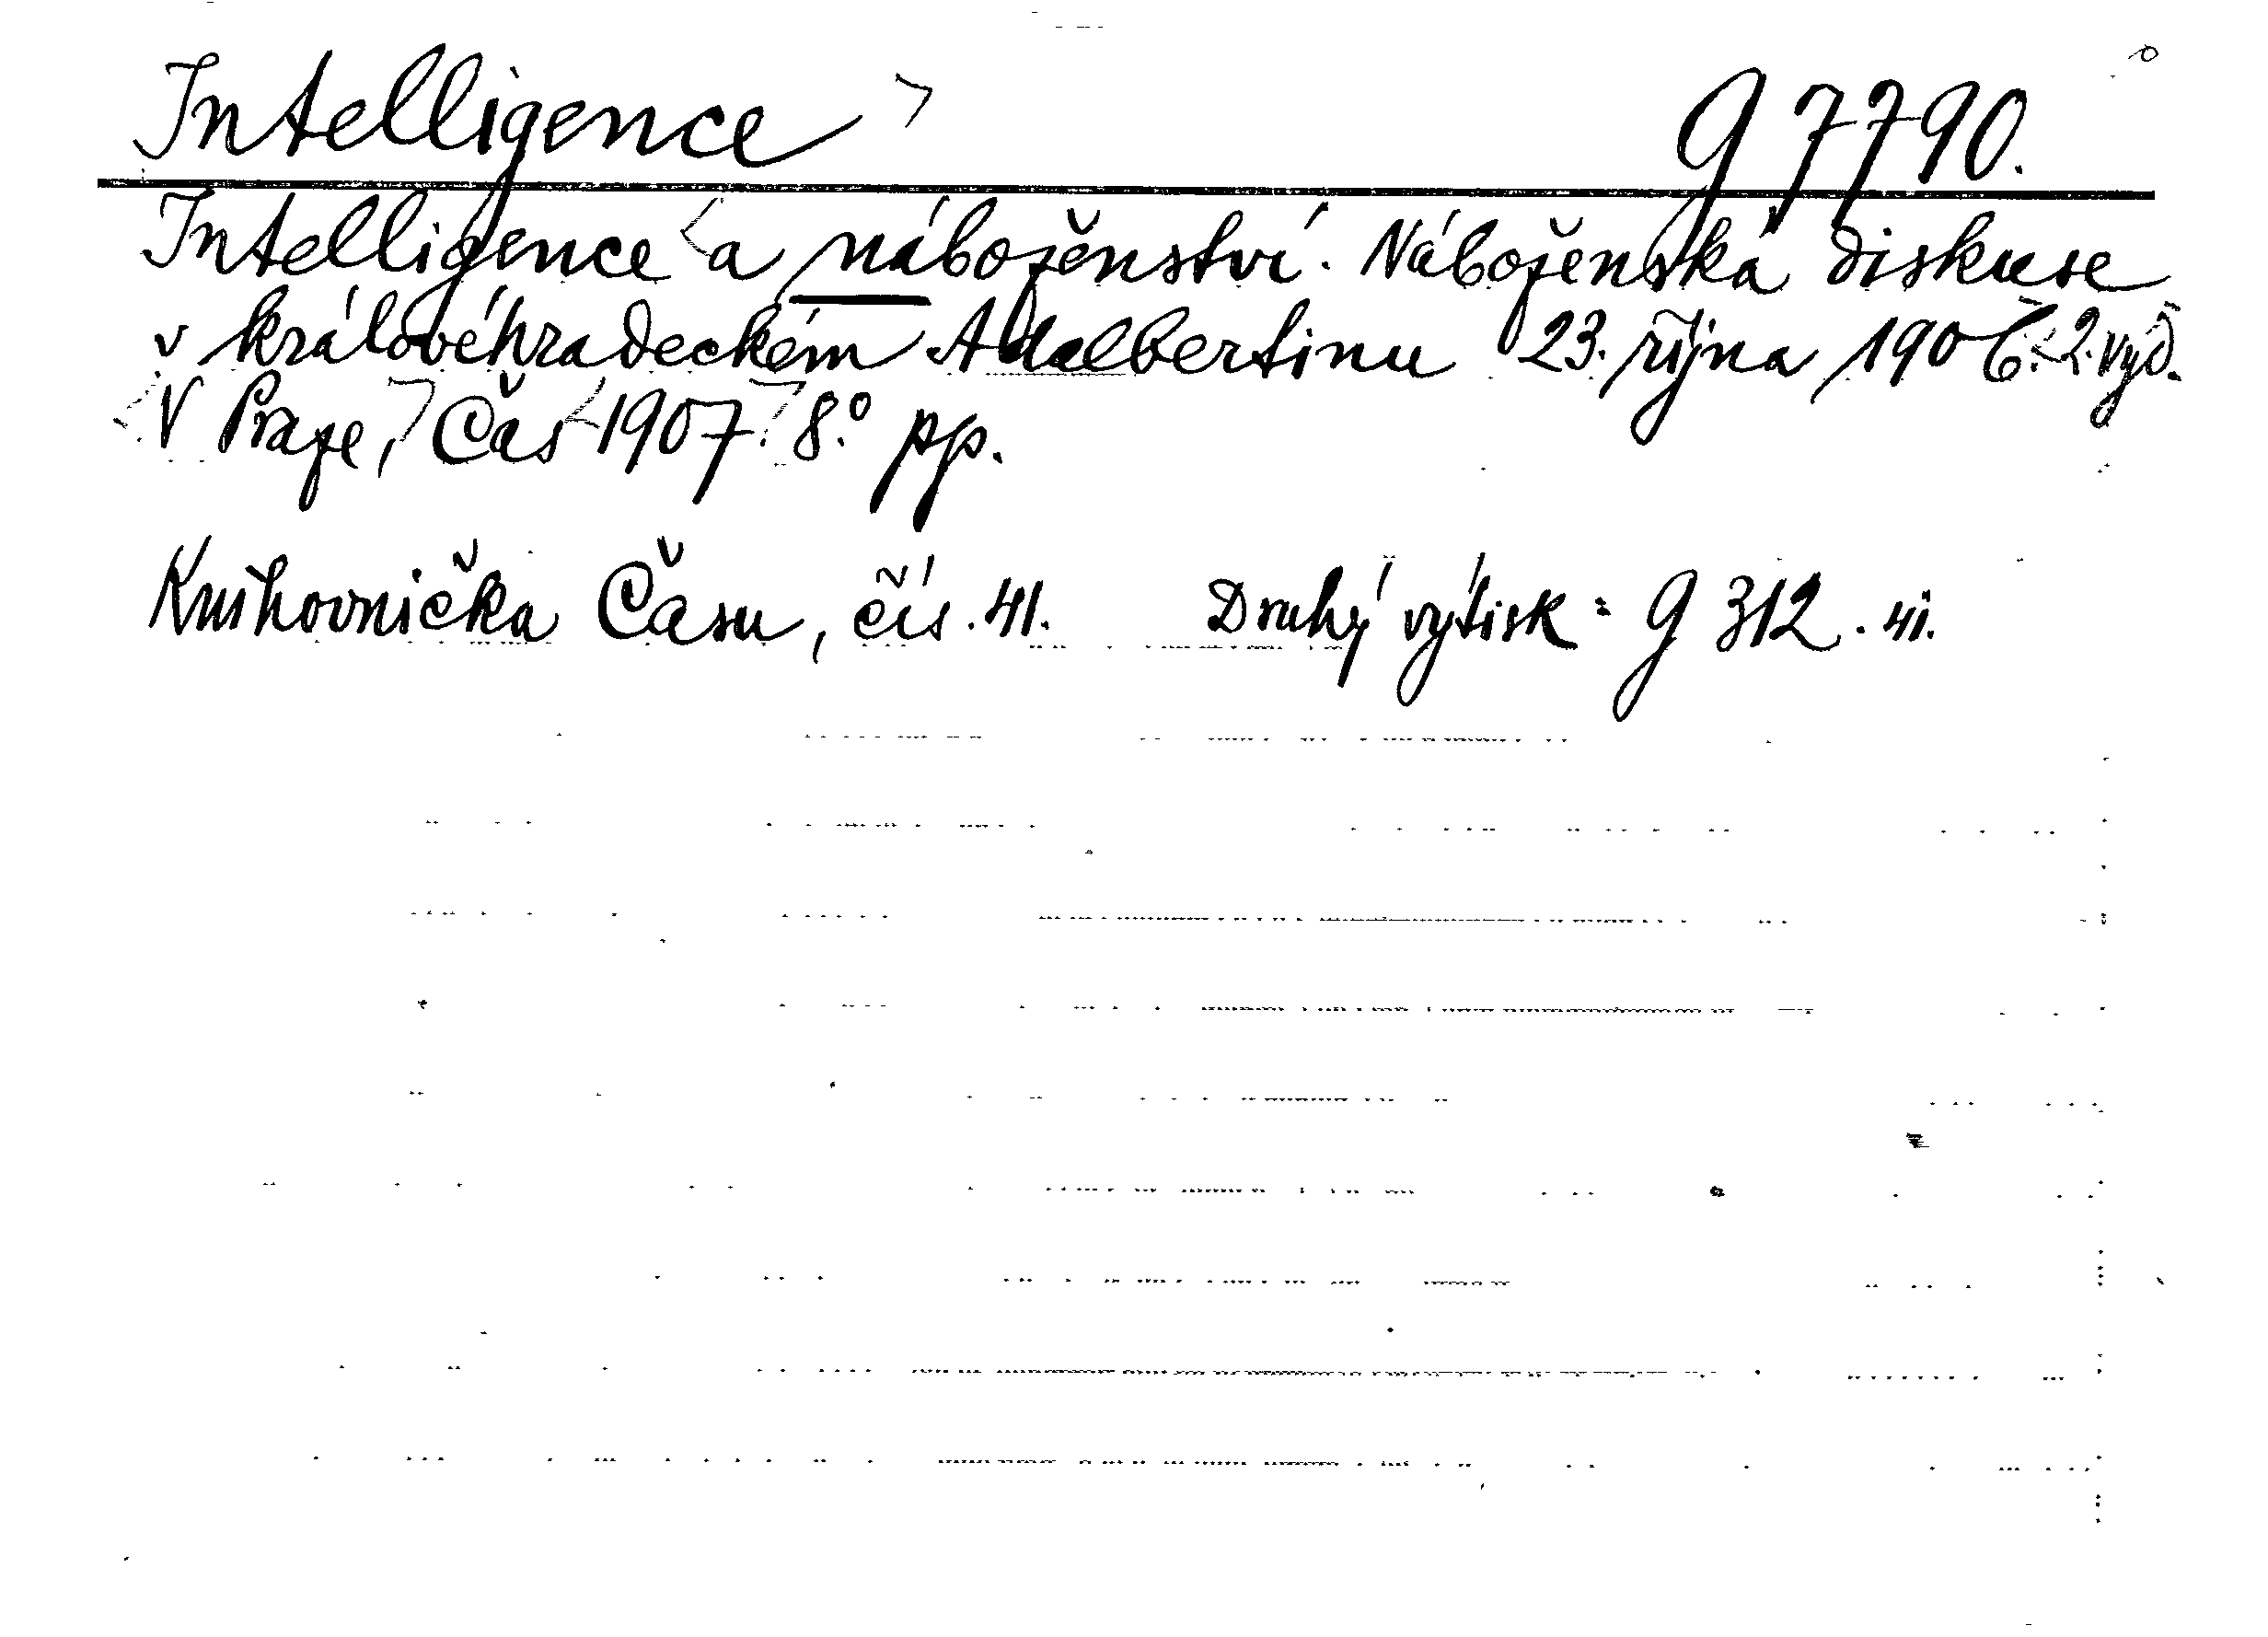 Intelligence G 7790.
Intelligence a náboženství. Náboženská diskuse
v královéhradeckém Adalbertinu 23. října 1906. 2. vyd.
V Praze, Čas 1907. 8.° pp.
Knihovnička Času, čís. 41. Druhý výtisk: G 312. 41.